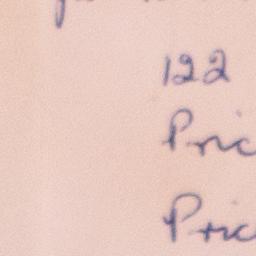 122
Pric
Pric